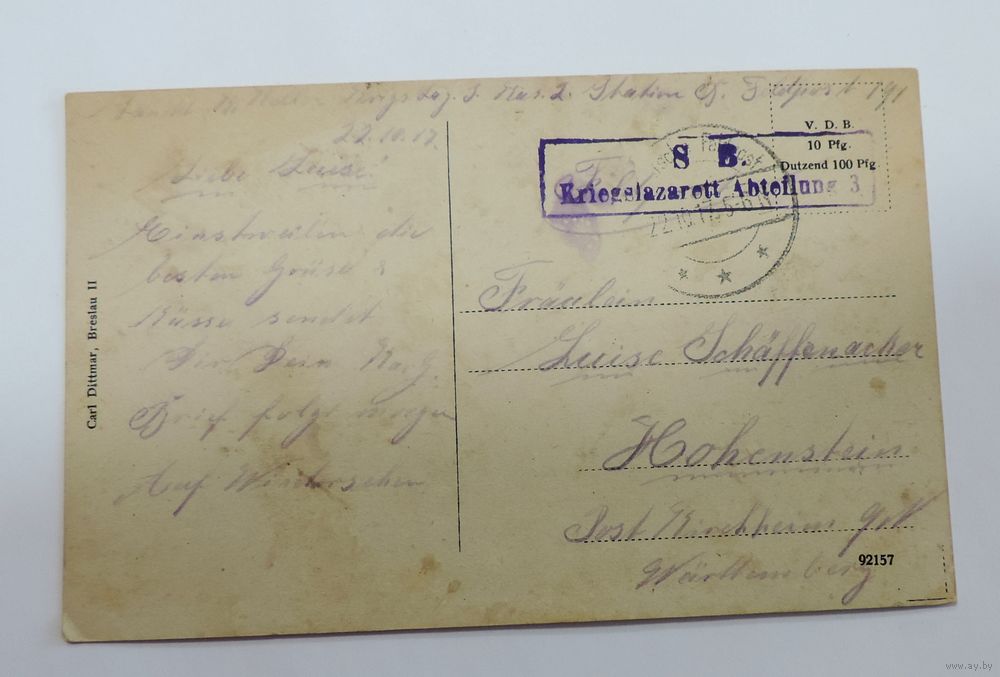 Kriegslaz. J. Kas. 2. Station Feldpost
22.10.17
Liebe Luise!
Einstweilen die
besten Grüse &
Küsse sendet
Dir Dein
Brief folgt morgen
Auf Wiedersehen
Carl Dittmar, Breslau II
V. D. B.
10 Pfg.
Dutzend 100 Pfg
S B.
Kriegslazarett Abteilung 3
22.10.17. 5-6 N
Fräulein
Luise Schäffenacker
Hohenstein
Post Kirchheim
Württemberg
92157
www.ay.by